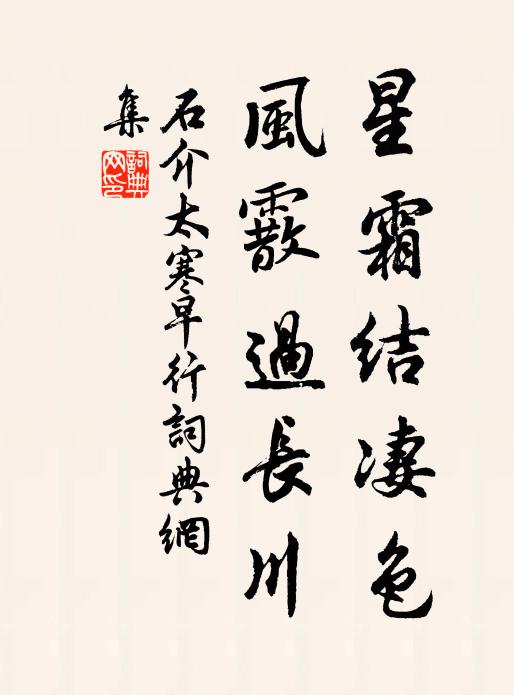 星霜結凄色
風霰過長川
石介太寒早行詞典網
集
詞典
网印